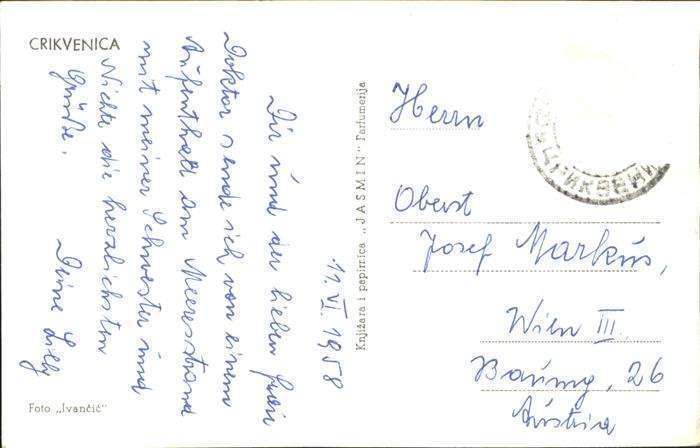 CRIKVENICA
11. VI. 1958
Dir und der lieben Frau
Doktor sende ich von einem
Aufenthalt am Meeresstrand
mit meiner Schwester und
Nichte die herzlichsten
Grüße.
Deine Lilly
Foto „Ivančić"
Knjižara i papirnica „JASMIN" Parfumerija
ЦРИКВЕНИ
Herrn
Oberst
Josef Markus,
Wien III.
Baumg. 26
Austria